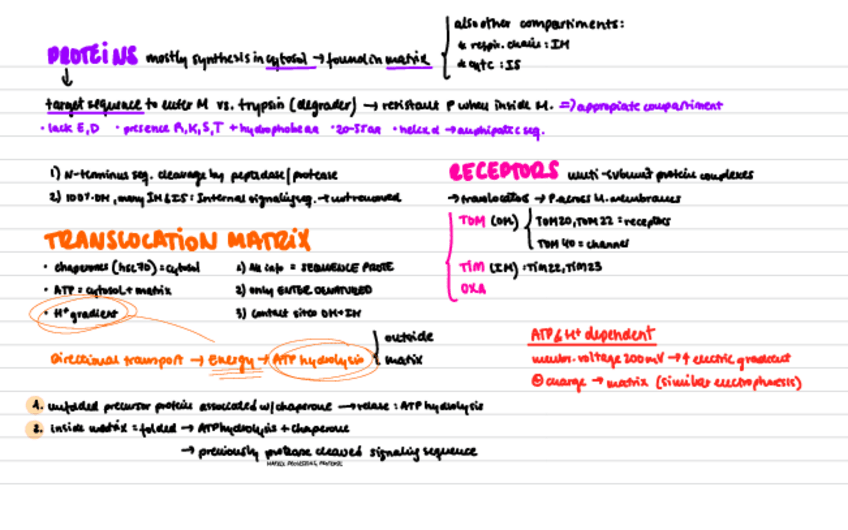 PROTEINS mostly synthesis in cytosol → found in matrix
also other compartiments:
* respir. chain: IM
* cytc: IS
↓
target sequence to enter M vs. trypsin (degrader) → resistant P when inside M. => appropiate compartiment
• lack E,D • presence R,K,S,T + hydrophobe AA • 20-STAA • helix α → amphipatic seq.
1) N-terminus seq. cleavage by peptidase/protease
2) 100% OM, many IM & IS: Internal signaling seq. → not removed
RECEPTORS multi-subunit protein complexes
→ translocators → P across M. membranes
TOM (OM) TOM20, TOM22 = receptors
TOM 40 = channel
TIM (IM): TIM22, TIM23
OXA
TRANSLOCATION MATRIX
• chaperones (hsc70) = cytosol
• ATP = cytosol + matrix
• H⁺ gradient
1) All info = SEQUENCE PROTE
2) only ENTER DENATURED
3) contact sites OM+IM
directional transport → energy → ATP hydrolysis
outside
matix
ATP & H⁺ dependent
membr. voltage 200mV → ↑ electric gradient
⊕ charge → matrix (similar electrophoresis)
1. unfolded precursor protein associated w/ chaperone → relase: ATP hydrolysis
2. inside matrix = folded → ATP hydrolysis + chaperone
→ previously protease cleaved signaling sequence
MATRIX PROCESSING PROTEASE